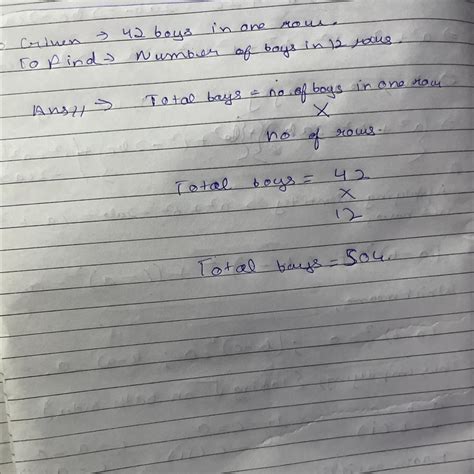 Given → 42 boys in one row.
To Find → Number of boys in 12 rows.
Ans// → Total boys = no of boys in one row
×
no of rows.
Total boys = 42
×
12
Total boys = 504.